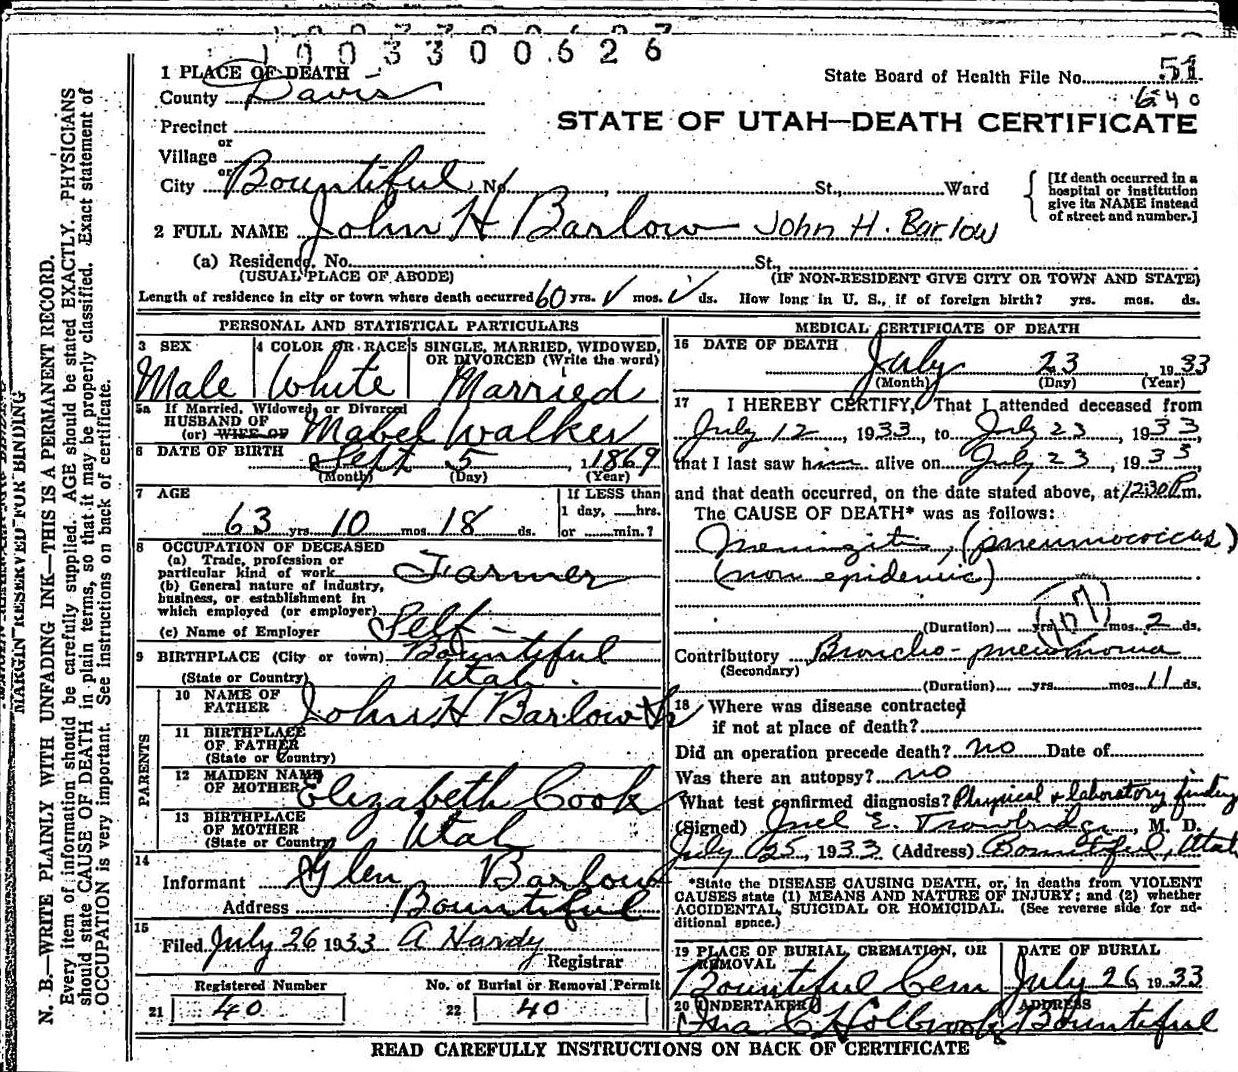 1003300626
1 PLACE OF DEATH
County Davis
State Board of Health File No. 51
640
STATE OF UTAH—DEATH CERTIFICATE
Precinct
or
Village
or
City Bountiful No. , St., Ward
[If death occurred in a hospital or institution give its NAME instead of street and number.]
2 FULL NAME John H Barlow John H. Barlow
(a) Residence, No. St.,
(USUAL PLACE OF ABODE) (IF NON-RESIDENT GIVE CITY OR TOWN AND STATE)
Length of residence in city or town where death occurred 60 yrs. mos. ds. How long in U. S., if of foreign birth? yrs. mos. ds.
PERSONAL AND STATISTICAL PARTICULARS
3 SEX 4 COLOR OR RACE 5 SINGLE, MARRIED, WIDOWED, OR DIVORCED (Write the word)
Male White Married
5a If Married, Widowed, or Divorced
HUSBAND OF
(or) WIFE OF Mabel Walker
6 DATE OF BIRTH Sept 5, 1869
(Month) (Day) (Year)
7 AGE If LESS than
1 day, hrs.
63 yrs. 10 mos. 18 ds. or min.?
8 OCCUPATION OF DECEASED
(a) Trade, profession or
particular kind of work Farmer
(b) General nature of industry,
business, or establishment in
which employed (or employer)
(c) Name of Employer Self
9 BIRTHPLACE (City or town) Bountiful
(State or Country) Utah
PARENTS
10 NAME OF
FATHER John H Barlow Sr
11 BIRTHPLACE
OF FATHER
(State or Country)
12 MAIDEN NAME
OF MOTHER Elizabeth Cook
13 BIRTHPLACE
OF MOTHER
(State or Country) Utah
14
Informant Glen Barlow
Address Bountiful
15
Filed July 26 1933 A Hardy
Registrar
Registered Number No. of Burial or Removal Permit
21 40 22 40
MEDICAL CERTIFICATE OF DEATH
16 DATE OF DEATH
July 23, 1933
(Month) (Day) (Year)
17 I HEREBY CERTIFY, That I attended deceased from
July 12, 1933, to July 23, 1933,
that I last saw him alive on July 23, 1933
and that death occurred, on the date stated above, at 12:30 P.m.
The CAUSE OF DEATH* was as follows:
Meningitis, (pneumococcas)
(non epidemic)
(Duration) yrs. mos. 2 ds.
107
Contributory Broncho-pneumonia
(Secondary)
(Duration) yrs. mos. 11 ds.
18 Where was disease contracted
if not at place of death?
Did an operation precede death? no Date of
Was there an autopsy? no
What test confirmed diagnosis? Physical & laboratory findings
(Signed) Joel E. Trowbridge, M. D.
July 25, 1933 (Address) Bountiful, Utah
*State the DISEASE CAUSING DEATH, or, in deaths from VIOLENT
CAUSES state (1) MEANS AND NATURE OF INJURY; and (2) whether
ACCIDENTAL, SUICIDAL OR HOMICIDAL. (See reverse side for additional space.)
19 PLACE OF BURIAL CREMATION, OR REMOVAL DATE OF BURIAL
Bountiful Cem July 26, 1933
20 UNDERTAKER ADDRESS
Ina C Holbrook Bountiful
READ CAREFULLY INSTRUCTIONS ON BACK OF CERTIFICATE
MARGIN RESERVED FOR BINDING
N. B.—WRITE PLAINLY WITH UNFADING INK—THIS IS A PERMANENT RECORD.
Every item of information should be carefully supplied. AGE should be stated EXACTLY. PHYSICIANS
should state CAUSE OF DEATH in plain terms, so that it may be properly classified. Exact statement of
OCCUPATION is very important. See instructions on back of certificate.